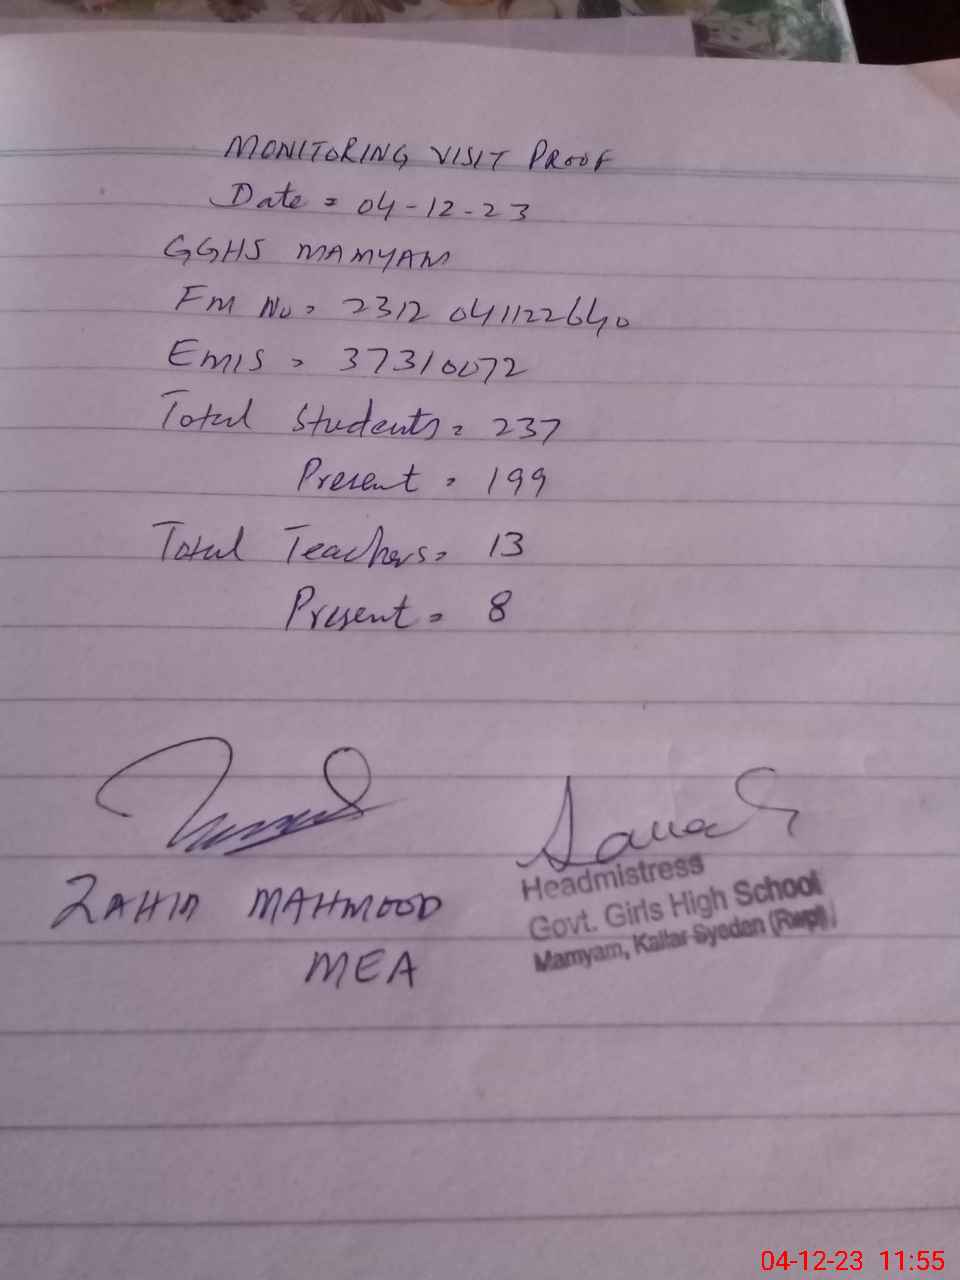 MONITORING VISIT PROOF
Date = 04-12-23
GGHS MAMYAM
FM No = 2312 041122640
EMIS = 37310072
Total Students = 237
Present = 199
Total Teachers = 13
Present = 8
ZAHID MAHMOOD
MEA
Headmistress
Govt. Girls High School
Mamyam, Kallar Syedan (Rwp)
04-12-23 11:55